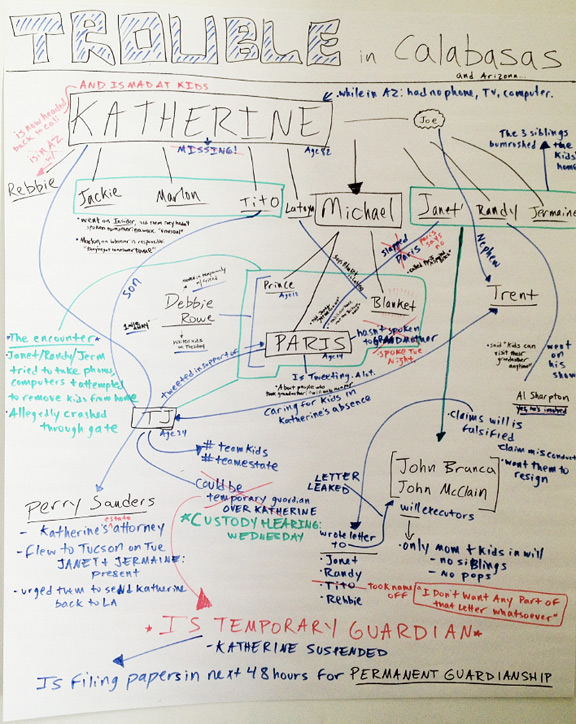 TROUBLE in Calabasas
and Arizona...
AND IS MAD AT KIDS
KATHERINE
Age 82
MISSING!
• while in AZ: had no phone, TV, computer.
Joe
is now headed
back to Cali
is in AZ
w/
Rebbie
The 3 siblings
bumrushed
the kids'
home
Jackie
Marlon
Tito
Latoya
Michael
Janet
Randy
Jermaine
slapped
Paris
Paris
says
no
son
Nephew
Trent
Prince
Debbie
Rowe
Blanket
PARIS
Age 14
hasn't spoken
to GRANDmother
SPOKE TUE
Night
Is Tweeting. A lot.
• The encounter •
Janet/Randy/Jerm
tried to take phones,
computers & attempted
to remove kids from home
• Allegedly crashed
through gate
tweeted in support of
caring for kids in
Katherine's absence
• said "kids can
visit their
grandmother
anytime"
went on
his show
Al Sharpton
yep he's involved
TJ
Age 34
# teamkids
# teamestate
could be
temporary guardian
OVER KATHERINE
*CUSTODY HEARING:
WEDNESDAY
LETTER
LEAKED
claims will is
falsified
claim misconduct
• want them to
resign
John Branca
John McClain
will executors
Perry Sanders
- Katherine's estate attorney
- flew to Tucson on Tue
JANET & JERMAINE
present
- urged them to send Katherine
back to LA
wrote letter
to
Janet
Randy
Tito
Rebbie
took name
OFF
"I Don't Want Any Part of
that Letter whatsoever"
• only mom + kids in will
- no siblings
- no pops
* IS TEMPORARY GUARDIAN *
- KATHERINE SUSPENDED
Is filing papers in next 48 hours for PERMANENT GUARDIANSHIP